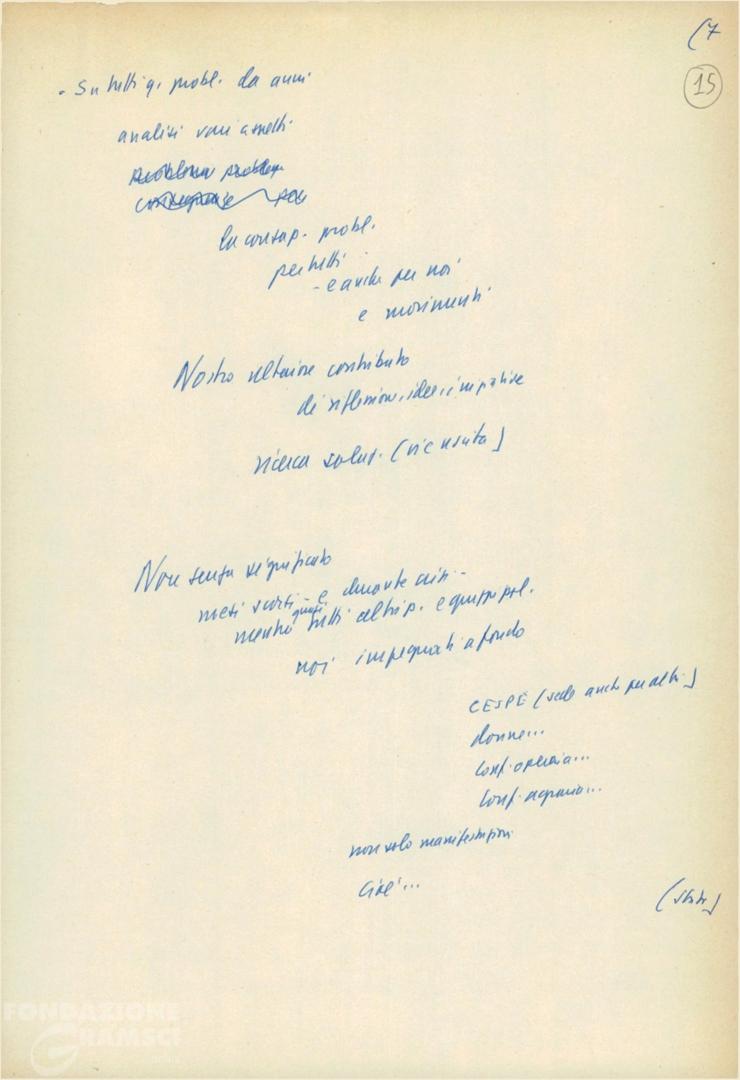 (7
15
- Su tutti q. probl. da anni
analisi vari aspetti
problema
la consap. probl.
per tutti
- e anche per noi
e movimenti
Nostro ulteriore contributo
di riflessioni, idee, iniziative
ricerca soluz. (vie uscita)
Non senza significato
mesi scorsi - e durante crisi -
mentre quasi tutti altri p. e gruppi pol.
noi impegnati a fondo
CESPE (sede anche per altri)
donne...
Conf. operaia...
Conf. agraria...
non solo manifestazioni
Cile...
FONDAZIONE
GRAMSCI